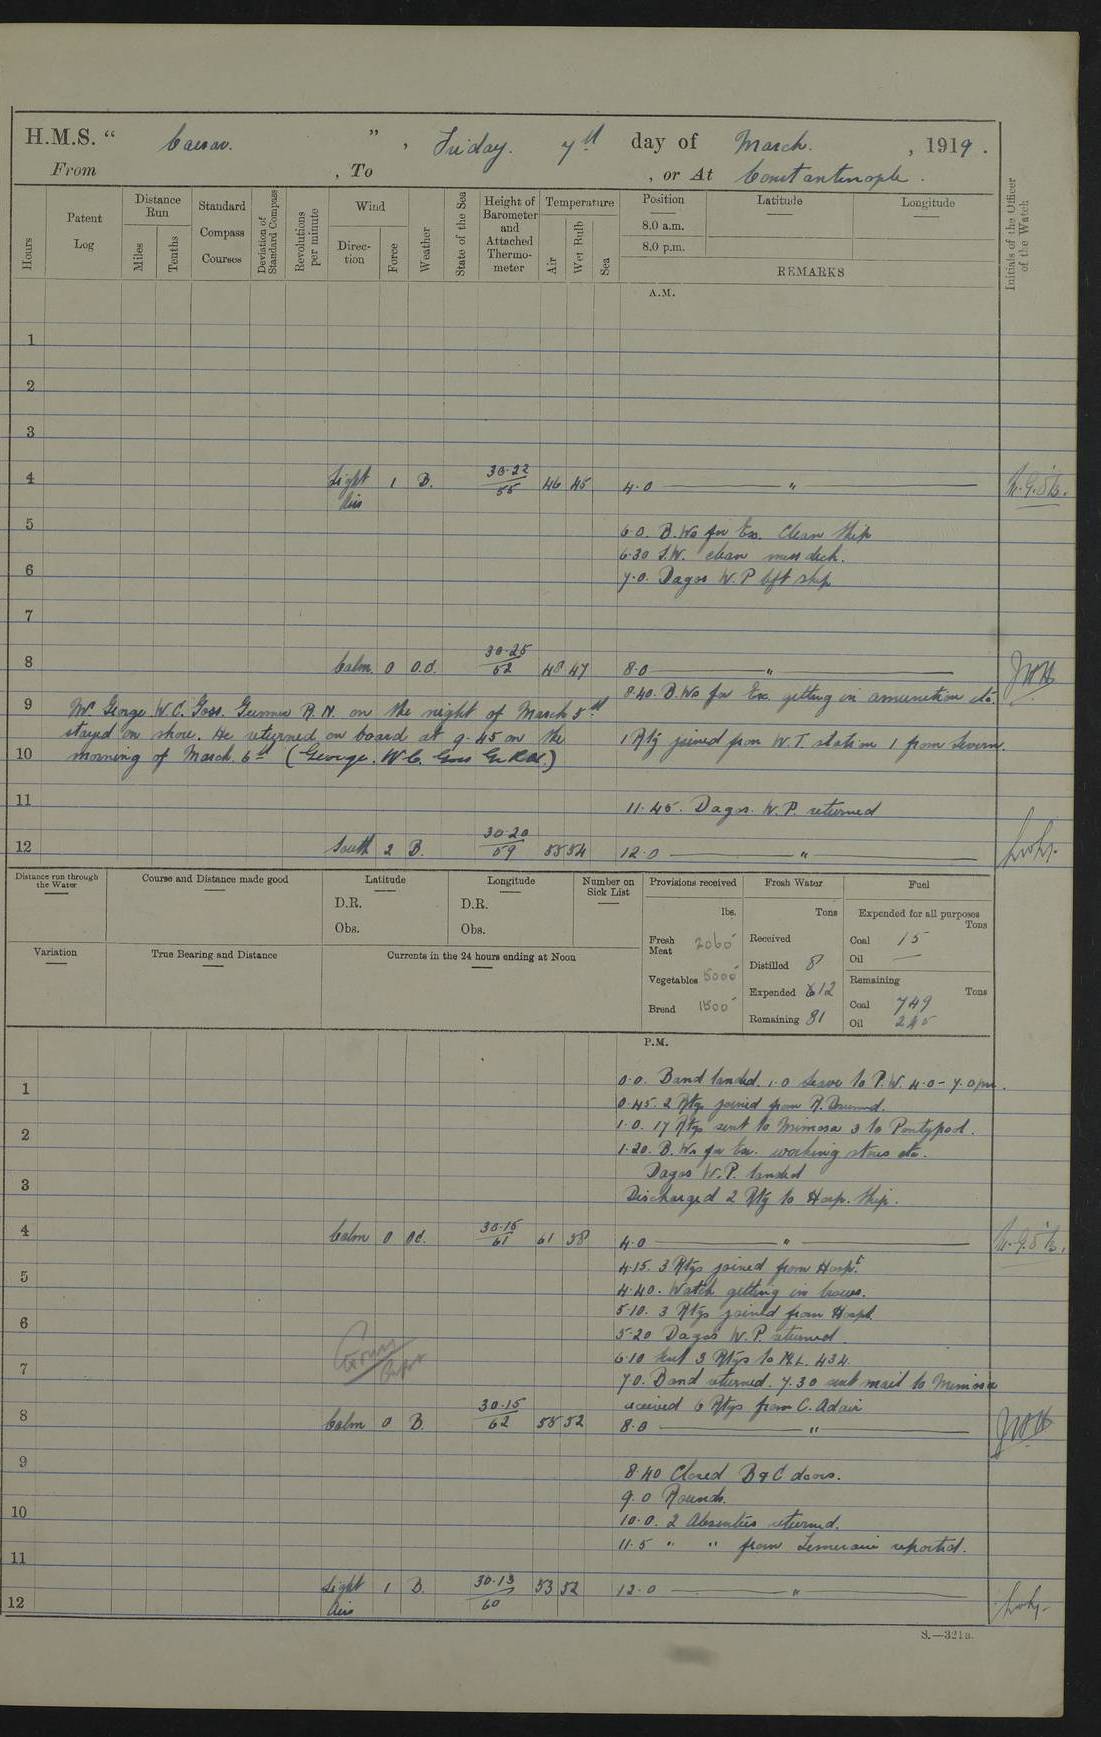 H.M.S. " Caesar. ", Friday. 7th day of March. , 1919.
From , To , or At Constantinople.
Hours
Patent Log
Distance Run
Miles
Tenths
Standard Compass Courses
Deviation of Standard Compass
Revolutions per minute
Wind
Direction
Force
Weather
State of the Sea
Height of Barometer and Attached Thermometer
Temperature
Air
Wet Bulb
Sea
Position
8.0 a.m.
8.0 p.m.
Latitude
Longitude
REMARKS
Initials of the Officer of the Watch
A.M.
1
2
3
4 Light Airs 1 B. 30.22 55 46 45 4.0 "
5 6.0. B.Ws for Ex. Clean Ship
6.30 S.W. clean mess deck.
6 7.0. Dagos W.P left ship
7
8 Calm. 0 O.d. 30.25 52 48 47 8.0 "
8.40. B.Ws for Ex. getting in amunition etc.
9 Mr. George W.C. Goss. Gunner R.N. on the night of March 5th
stayed on shore. He returned on board at 9.45 on the
1 Rtg joined from W.T. station 1 from Severn.
10 morning of March 6th (George. W.C. Goss Gr R.N.)
11 11.45. Dagos. W.P. returned
12 South 2 B. 30.20 59 55 54 12.0 "
Distance run through the Water
Course and Distance made good
Latitude
D.R.
Obs.
Longitude
D.R.
Obs.
Number on Sick List
Provisions received
lbs.
Fresh Meat 2060
Vegetables 5000
Bread 1500
Fresh Water
Tons
Received
Distilled 8
Expended 12
Remaining 81
Fuel
Expended for all purposes
Tons
Coal 15
Oil —
Remaining
Tons
Coal 749
Oil 245
Variation
True Bearing and Distance
Currents in the 24 hours ending at Noon
P.M.
0.0. Band landed. 1.0 Leave to P.W. 4.0 - 7.0 pm.
1 0.45. 2 Rtgs joined from R.
1.0. 17 Rtgs sent to Mimosa 3 to Pontypool.
2 1.20. B.Ws for Ex. working stores etc.
Dagos W.P. landed
3 Discharged 2 Rtg to Hosp. Ship.
4 Calm 0 Od. 30.15 61 61 58 4.0 "
4.15. 3 Rtgs joined from Hospl.
5 4.40. Watch getting in
5.10. 3 Rtgs joined from Hospl.
6 5.20 Dagos W.P. returned.
6.10 sent 3 Rtgs to M.L. 434.
7 7.0. Band returned. 7.30 sent mail to Mimosa
received 6 Rtgs from C. Adair
8 Calm 0 B. 30.15 62 55 52 8.0 "
9 8.40 Closed B & C doors.
9.0 Rounds.
10 10.0. 2 Absentees returned.
11.5 " " from Temeraire reported.
11
12 Light Airs 1 B. 30.13 60 53 52 12.0 "
S.—321a.